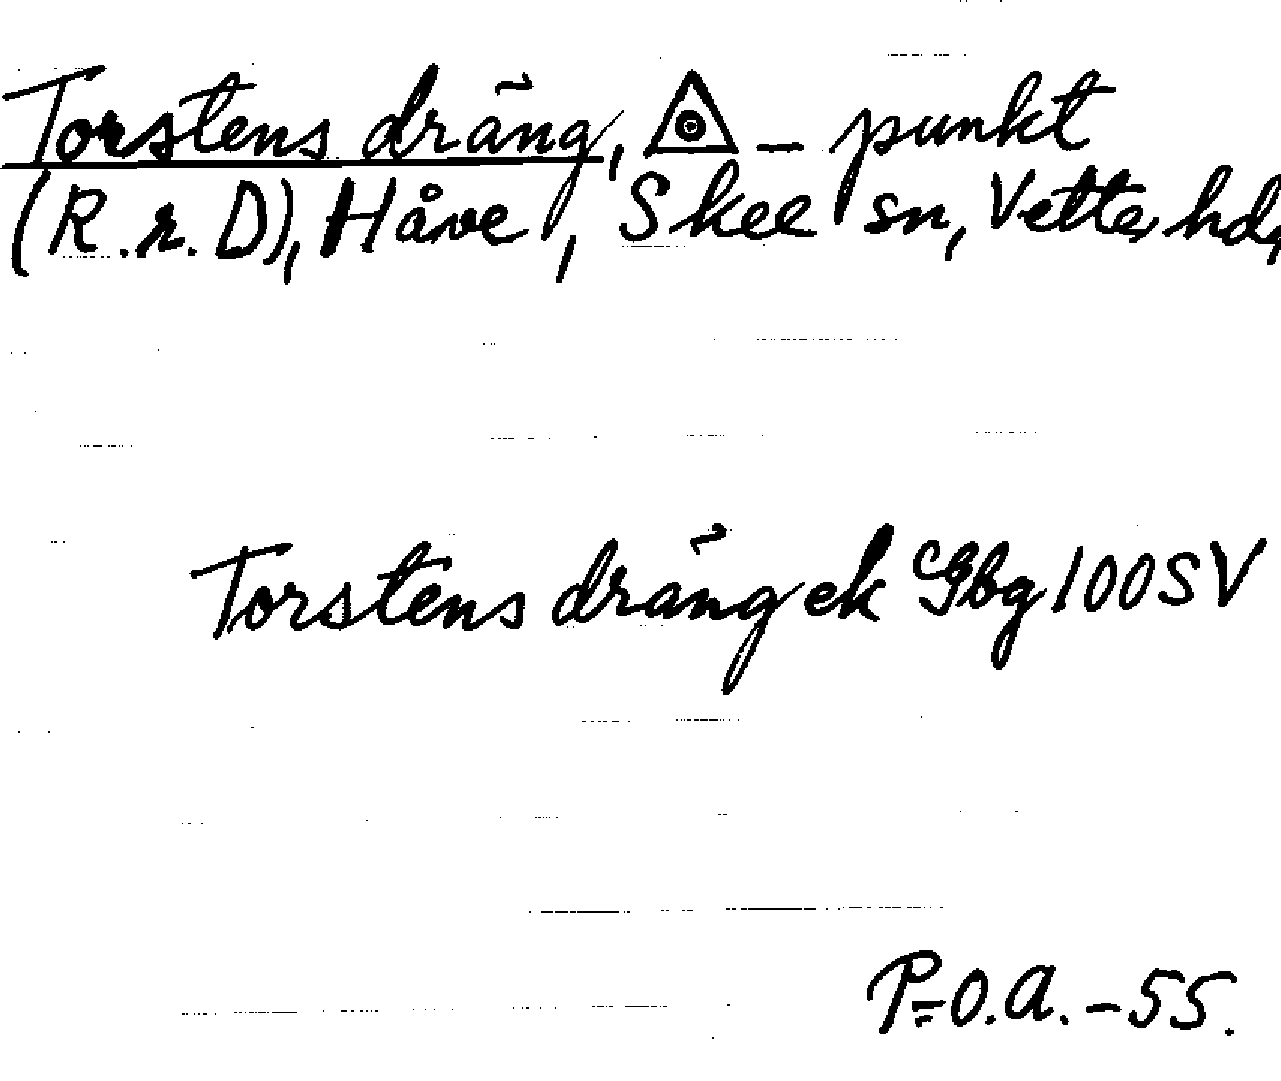 Torstens dräng, - punkt
(R.r.D), Håve, Skee sn, Vette hd,
Torstens dräng ek Gbg 100 SV
P=O.A.-55.